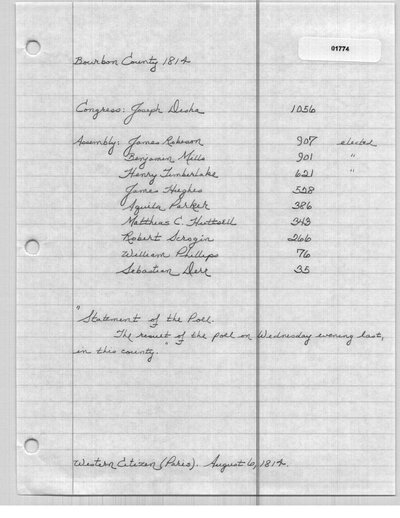 01774
Bourbon County 1814
Congress: Joseph Desha 1056
Assembly: James Roberson 907 elected
Benjamin Mills 901 "
Henry Timberlake 621 "
James Hughes 558
Aquila Parker 386
Matthias C. 343
Robert Scrogin 266
William Phillips 76
Sebastian 35
"Statement of the Poll.
The result of the poll on Wednesday evening last,
in this county."
Western Citizen (Paris). August 6, 1814.